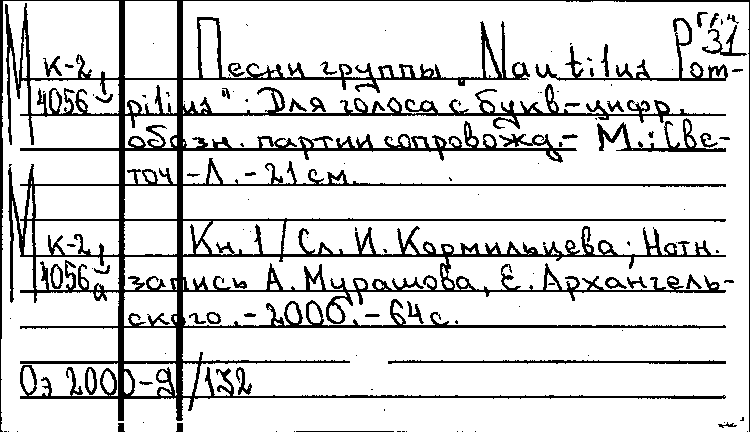 31
М К-2 Песни группы "Nautilus Pom-
4056 pilius": Для голоса с букв.-цифр.
обозн. партии сопровожд.- М.: Све-
точ -Л. - 21 см.
М К-2 Кн. 1 / Сл. И. Кормильцева; Нотн.
4056 а запись А. Мурашова, Е. Архангель-
ского. - 2000. - 64 с.
Оэ 2000-9/132